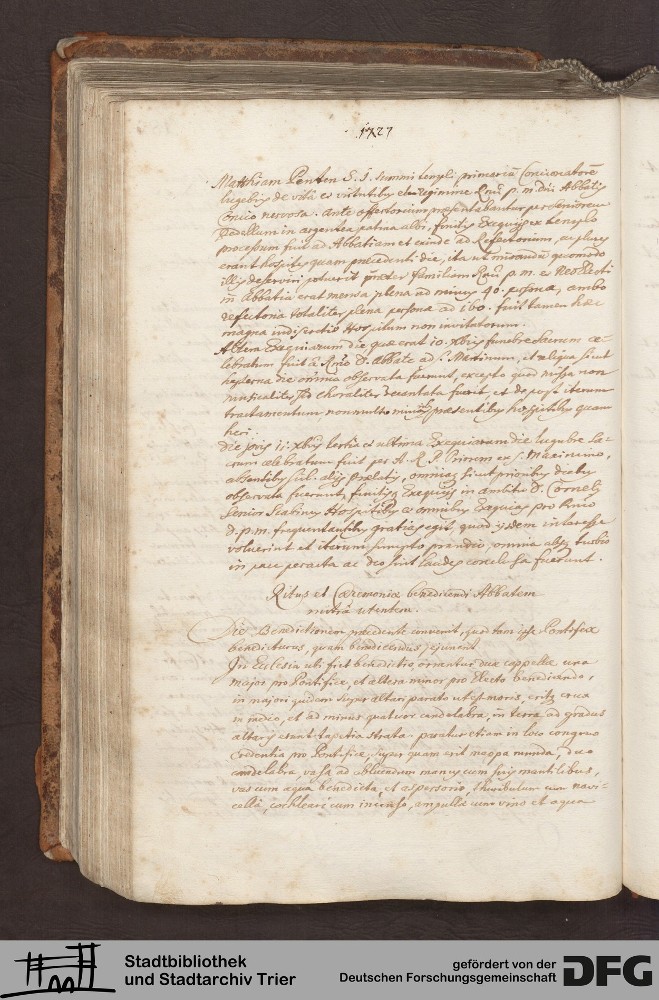 1727
Matthiam Penten S. J. summi templi primariũ Concionatorẽ
lugebris de vitâ et virtutibq et regimine Rmi p. m. Dni Abbatis
Concio nervosa. ante offertorium praesentabantur per seniorem
Pedellum in argentea patina albi, finitis Exequijs ex templo
processum fuit ad Abbatiam et exinde ad Refectorium, ex plures
erant hospites quam praecedenti die, ita ut mirandũ quomodo
illis deserviri potuerit praeter familiam Rmi p. m. et Neoelecti
in Abbatia erat mensa plena ad minus 40. persona, ambo
refectoria totaliter plena persona ad 160. fuit tamen haec
magna indiscretio Hospitum non invitatorum.
Altera Exequiarum die quae erat 10. xbris funebre sacrum ce-
lebratum fuit â Rmo D. Abbate ad S. Martinum, et reliqua sicut
hesterna die omnia observata fuerunt, excepto quod missa non
musicaliter sed choraliter decantata fuerit, et de post iterum
tractamentum non multo minus praesentibq hospitibq quam
heri.
die jovis 11. xbris tertia et ultima Exequiarum die lugubre sa-
crum celebratum fuit per A. R. P. Priorem ex S. Maximino,
absentibq aliis Praelatis, omnia sicut prioribq diebq
observata fuerunt, finitisq Exequijs in ambitu D. Cornelij
senior Scabinus Hospitibq et omnibus Exequias pro Rmo
D. p. m. frequentantibq gratias egit, quod ijsdem interesse
voluerint et iterum sumpto prandio, omnia absq turbio
in pace peracta ac deo sint laudes conclusa fuerunt.
Ritus et Caeremoniae benedicendi Abbatem
mitrâ utentem.
Die Benedictionem praecedente convenit, quod tam ipse Pontifex
benedicturus, quam benedicendus jejunent
In Ecclesia ubi fiet benedictio, ornantur duae cappellae una
major pro Pontifice, et altera minor pro Electo benedicendo,
in majori quidem super altari parato ut est moris, erit crux
in medio, et ad minus quatuor candelabra, in terra ad gradus
altaris erunt tapetia strata. paratur etiam in loco congruo
Credentia pro Pontifice, super quam erit mappa munda, duo
candelabra, vasa ad abluendum manus cum suis mantilibus,
vas cum aqua benedicta, et aspersorio, thuribulum cum navi-
cellâ, cochleari cum incenso, ampullae cum vino et aqua
Stadtbibliothek
und Stadtarchiv Trier
gefördert von der
Deutschen Forschungsgemeinschaft
DFG